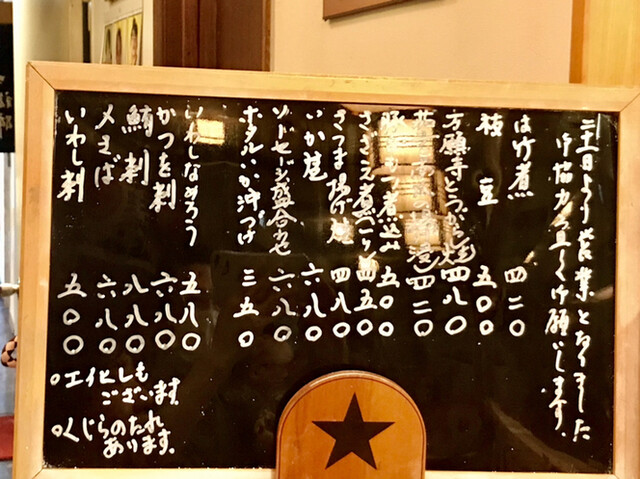 二十一日より営業となりました
御協力よろしく御願いします。
はげ煮 四二〇
枝豆 五〇〇
万願寺とうがらし焼 四八〇
南 浸 四二〇
豚もつ煮込み 五〇〇
さざえ煮つけ 四五〇
さつま揚げ焼 四八〇
いか焼 六八〇
ソーセージ盛合わせ 六八〇
ホタルいか沖づけ 三五〇
いわしなめろう 五八〇
かつを刺 六八〇
鮪刺 八八〇
〆さば 六八〇
いわし刺 五〇〇
○エイヒレも
ございます。
○くじらのたれ
あります。